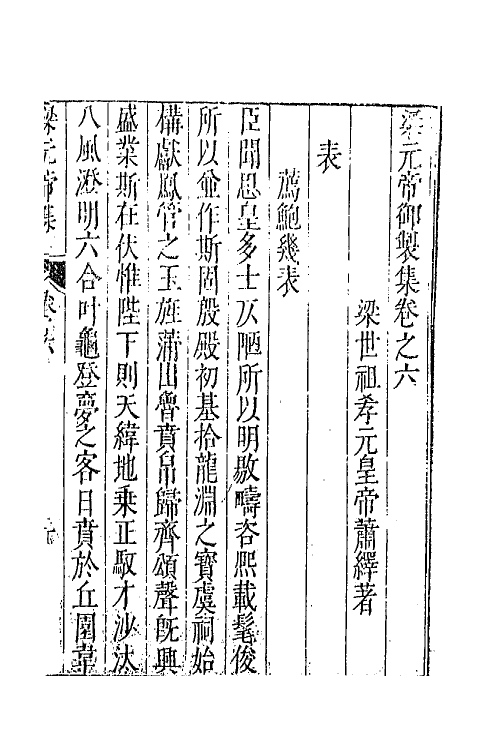 梁元帝御製集卷之六
梁世祖孝元皇帝蕭繹著
表
薦鮑幾表
臣聞思皇多士仄陋所以明敭疇咨熙載髦俊
所以並作斯固殷殿初基拾龍淵之寶虞祠始
構獻鳳管之玉旌蒲出魯賁帛歸齊頌聲旣興
盛業斯在伏惟陛下則天緯地乘正馭才沙汰
八風澄明六合叶龜登夢之客日賁於丘園韋
梁元帝集 卷六